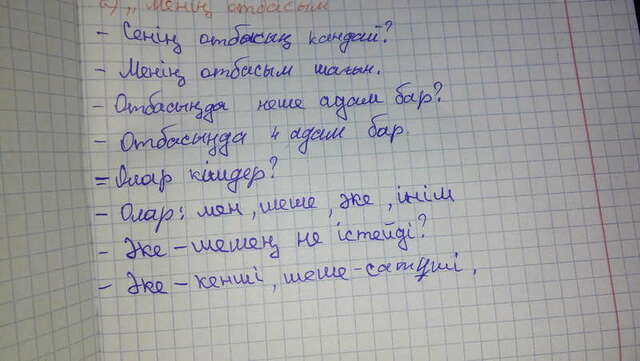 а) „Менің отбасым
- Сенің отбасың кандай?
- Менің отбасым шағын.
- Отбасыңда неше адам бар?
- Отбасыңда 4 адам бар.
= Олар кімдер?
- Олар: мен, шеше, әке, інім
- Әке-шешең не істейді?
- Әке-кенші, шеше-сатушы,